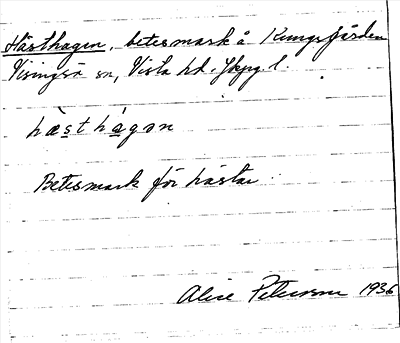 Hästhagen, betesmark å Kungsgården
Visingsö sn, Vista hd. Jkpg. l.
hàsthágən
Betesmark för hästar
Alice Petersson 1936